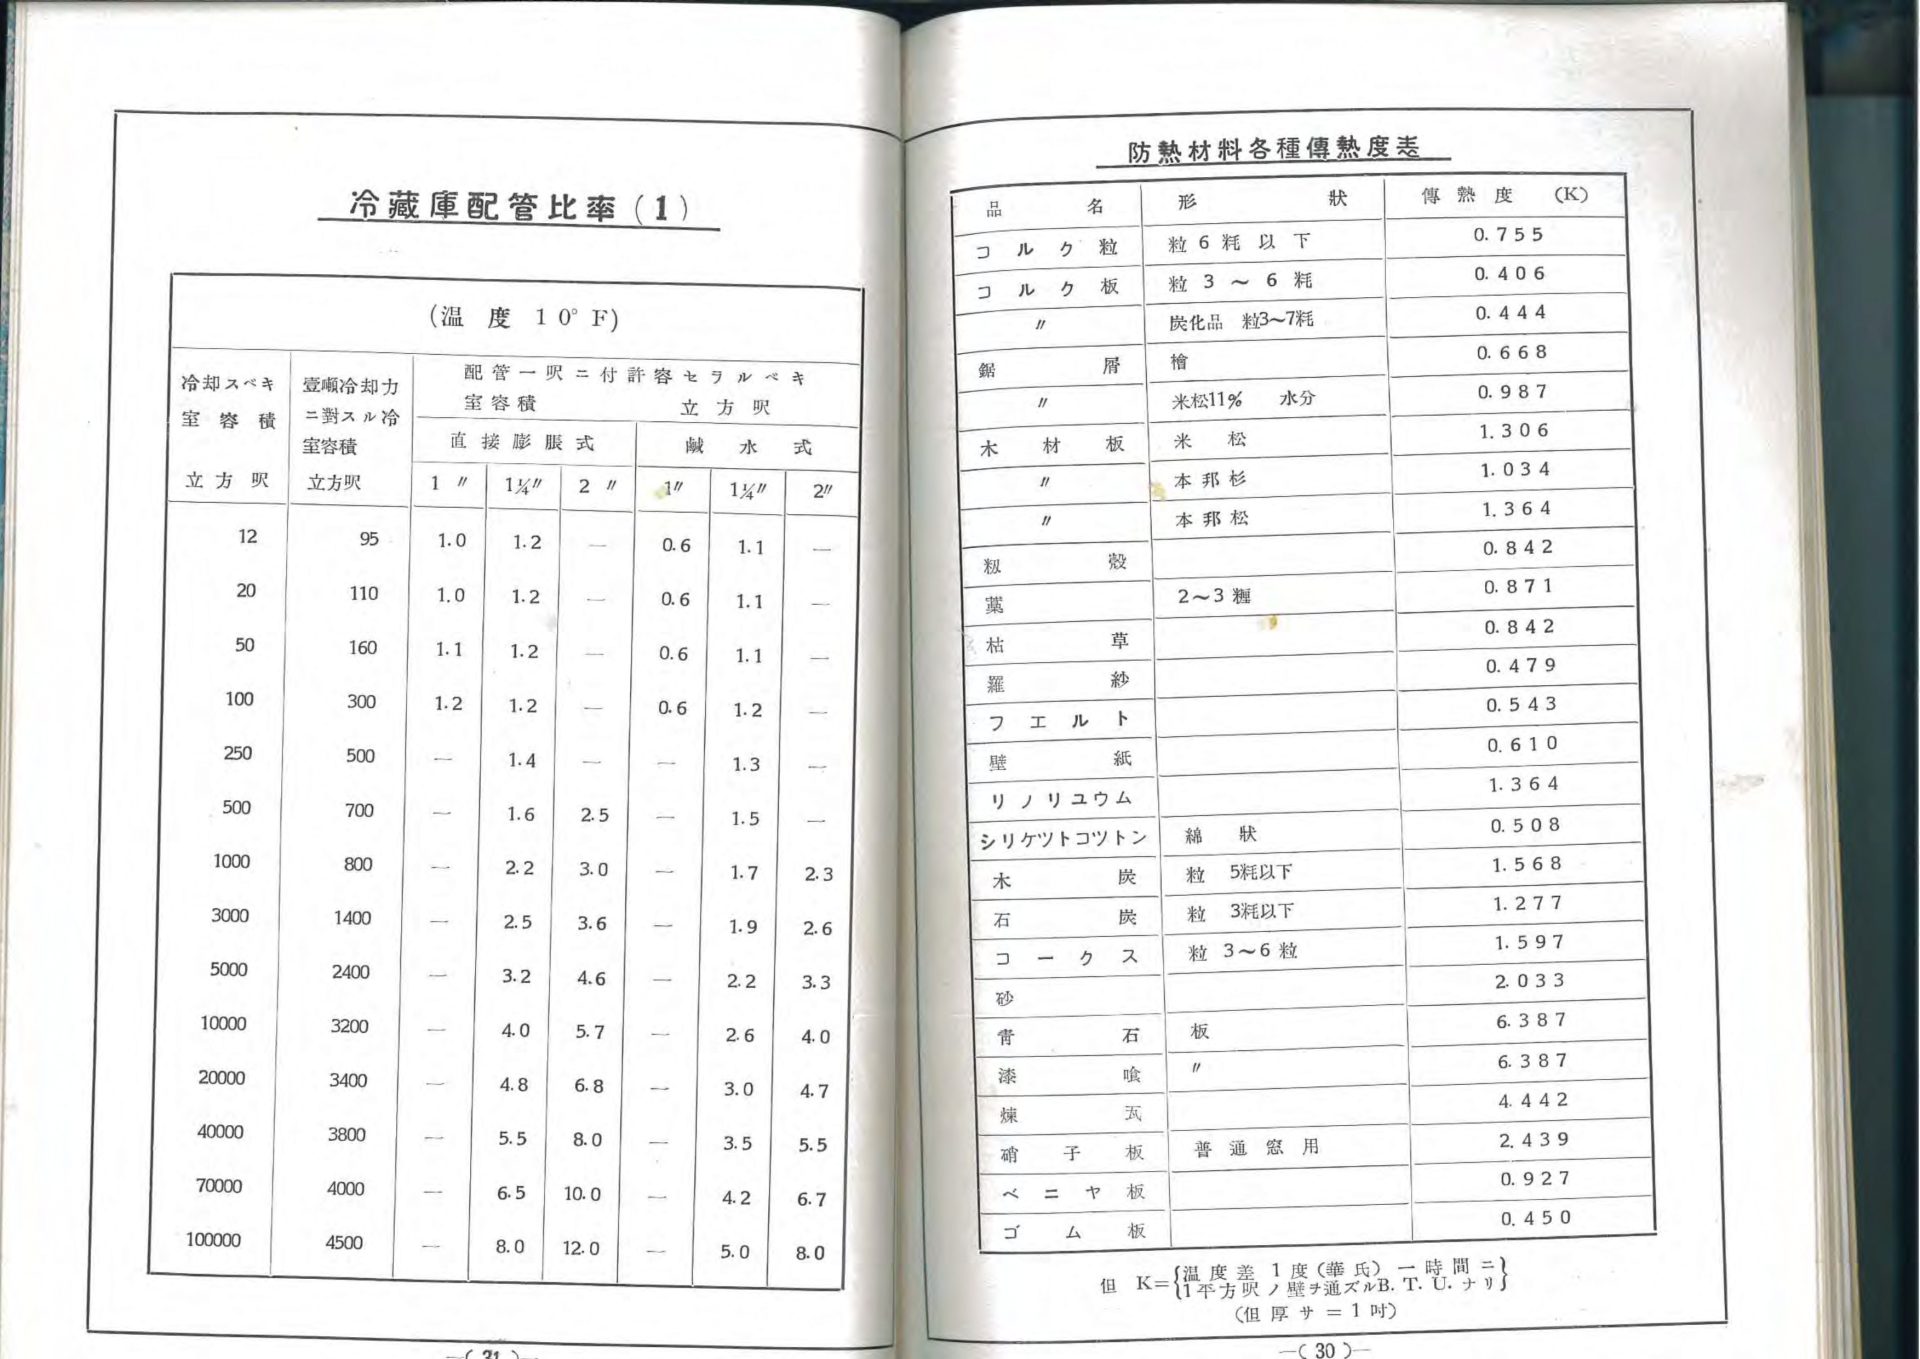 冷藏庫配管比率(1)
(温度 10°F)
冷却スベキ 室容積 立方呎
壹噸冷却力 ニ對スル冷 室容積 立方呎
配管一呎ニ付許容セラルベキ
室容積 立方呎
直接膨脹式 鹹水式
1〃 1¼〃 2〃 1〃 1¼〃 2〃
12 95 1.0 1.2 — 0.6 1.1 —
20 110 1.0 1.2 — 0.6 1.1 —
50 160 1.1 1.2 — 0.6 1.1 —
100 300 1.2 1.2 — 0.6 1.2 —
250 500 — 1.4 — — 1.3 —
500 700 — 1.6 2.5 — 1.5 —
1000 800 — 2.2 3.0 — 1.7 2.3
3000 1400 — 2.5 3.6 — 1.9 2.6
5000 2400 — 3.2 4.6 — 2.2 3.3
10000 3200 — 4.0 5.7 — 2.6 4.0
20000 3400 — 4.8 6.8 — 3.0 4.7
40000 3800 — 5.5 8.0 — 3.5 5.5
70000 4000 — 6.5 10.0 — 4.2 6.7
100000 4500 — 8.0 12.0 — 5.0 8.0
—( 31 )—
防熱材料各種傳熱度表
品名 形狀 傳熱度 (K)
コルク粒 粒6粍以下 0.755
コルク板 粒3～6粍 0.406
〃 炭化品 粒3～7粍 0.444
鋸屑 檜 0.668
〃 米松11% 水分 0.987
木材板 米松 1.306
〃 本邦杉 1.034
〃 本邦松 1.364
籾殻 0.842
藁 2～3糎 0.871
枯草 0.842
羅紗 0.479
フエルト 0.543
壁紙 0.610
リノリユウム 1.364
シリケツトコツトン 綿狀 0.508
木炭 粒 5粍以下 1.568
石炭 粒 3粍以下 1.277
コークス 粒 3～6粒 1.597
砂 2.033
青石 板 6.387
漆喰 〃 6.387
煉瓦 4.442
硝子板 普通窓用 2.439
ベニヤ板 0.927
ゴム板 0.450
但 K={温度差1度(華氏)一時間ニ
1平方呎ノ壁ヲ通ズルB.T.U.ナリ}
(但厚サ=1吋)
—( 30 )—